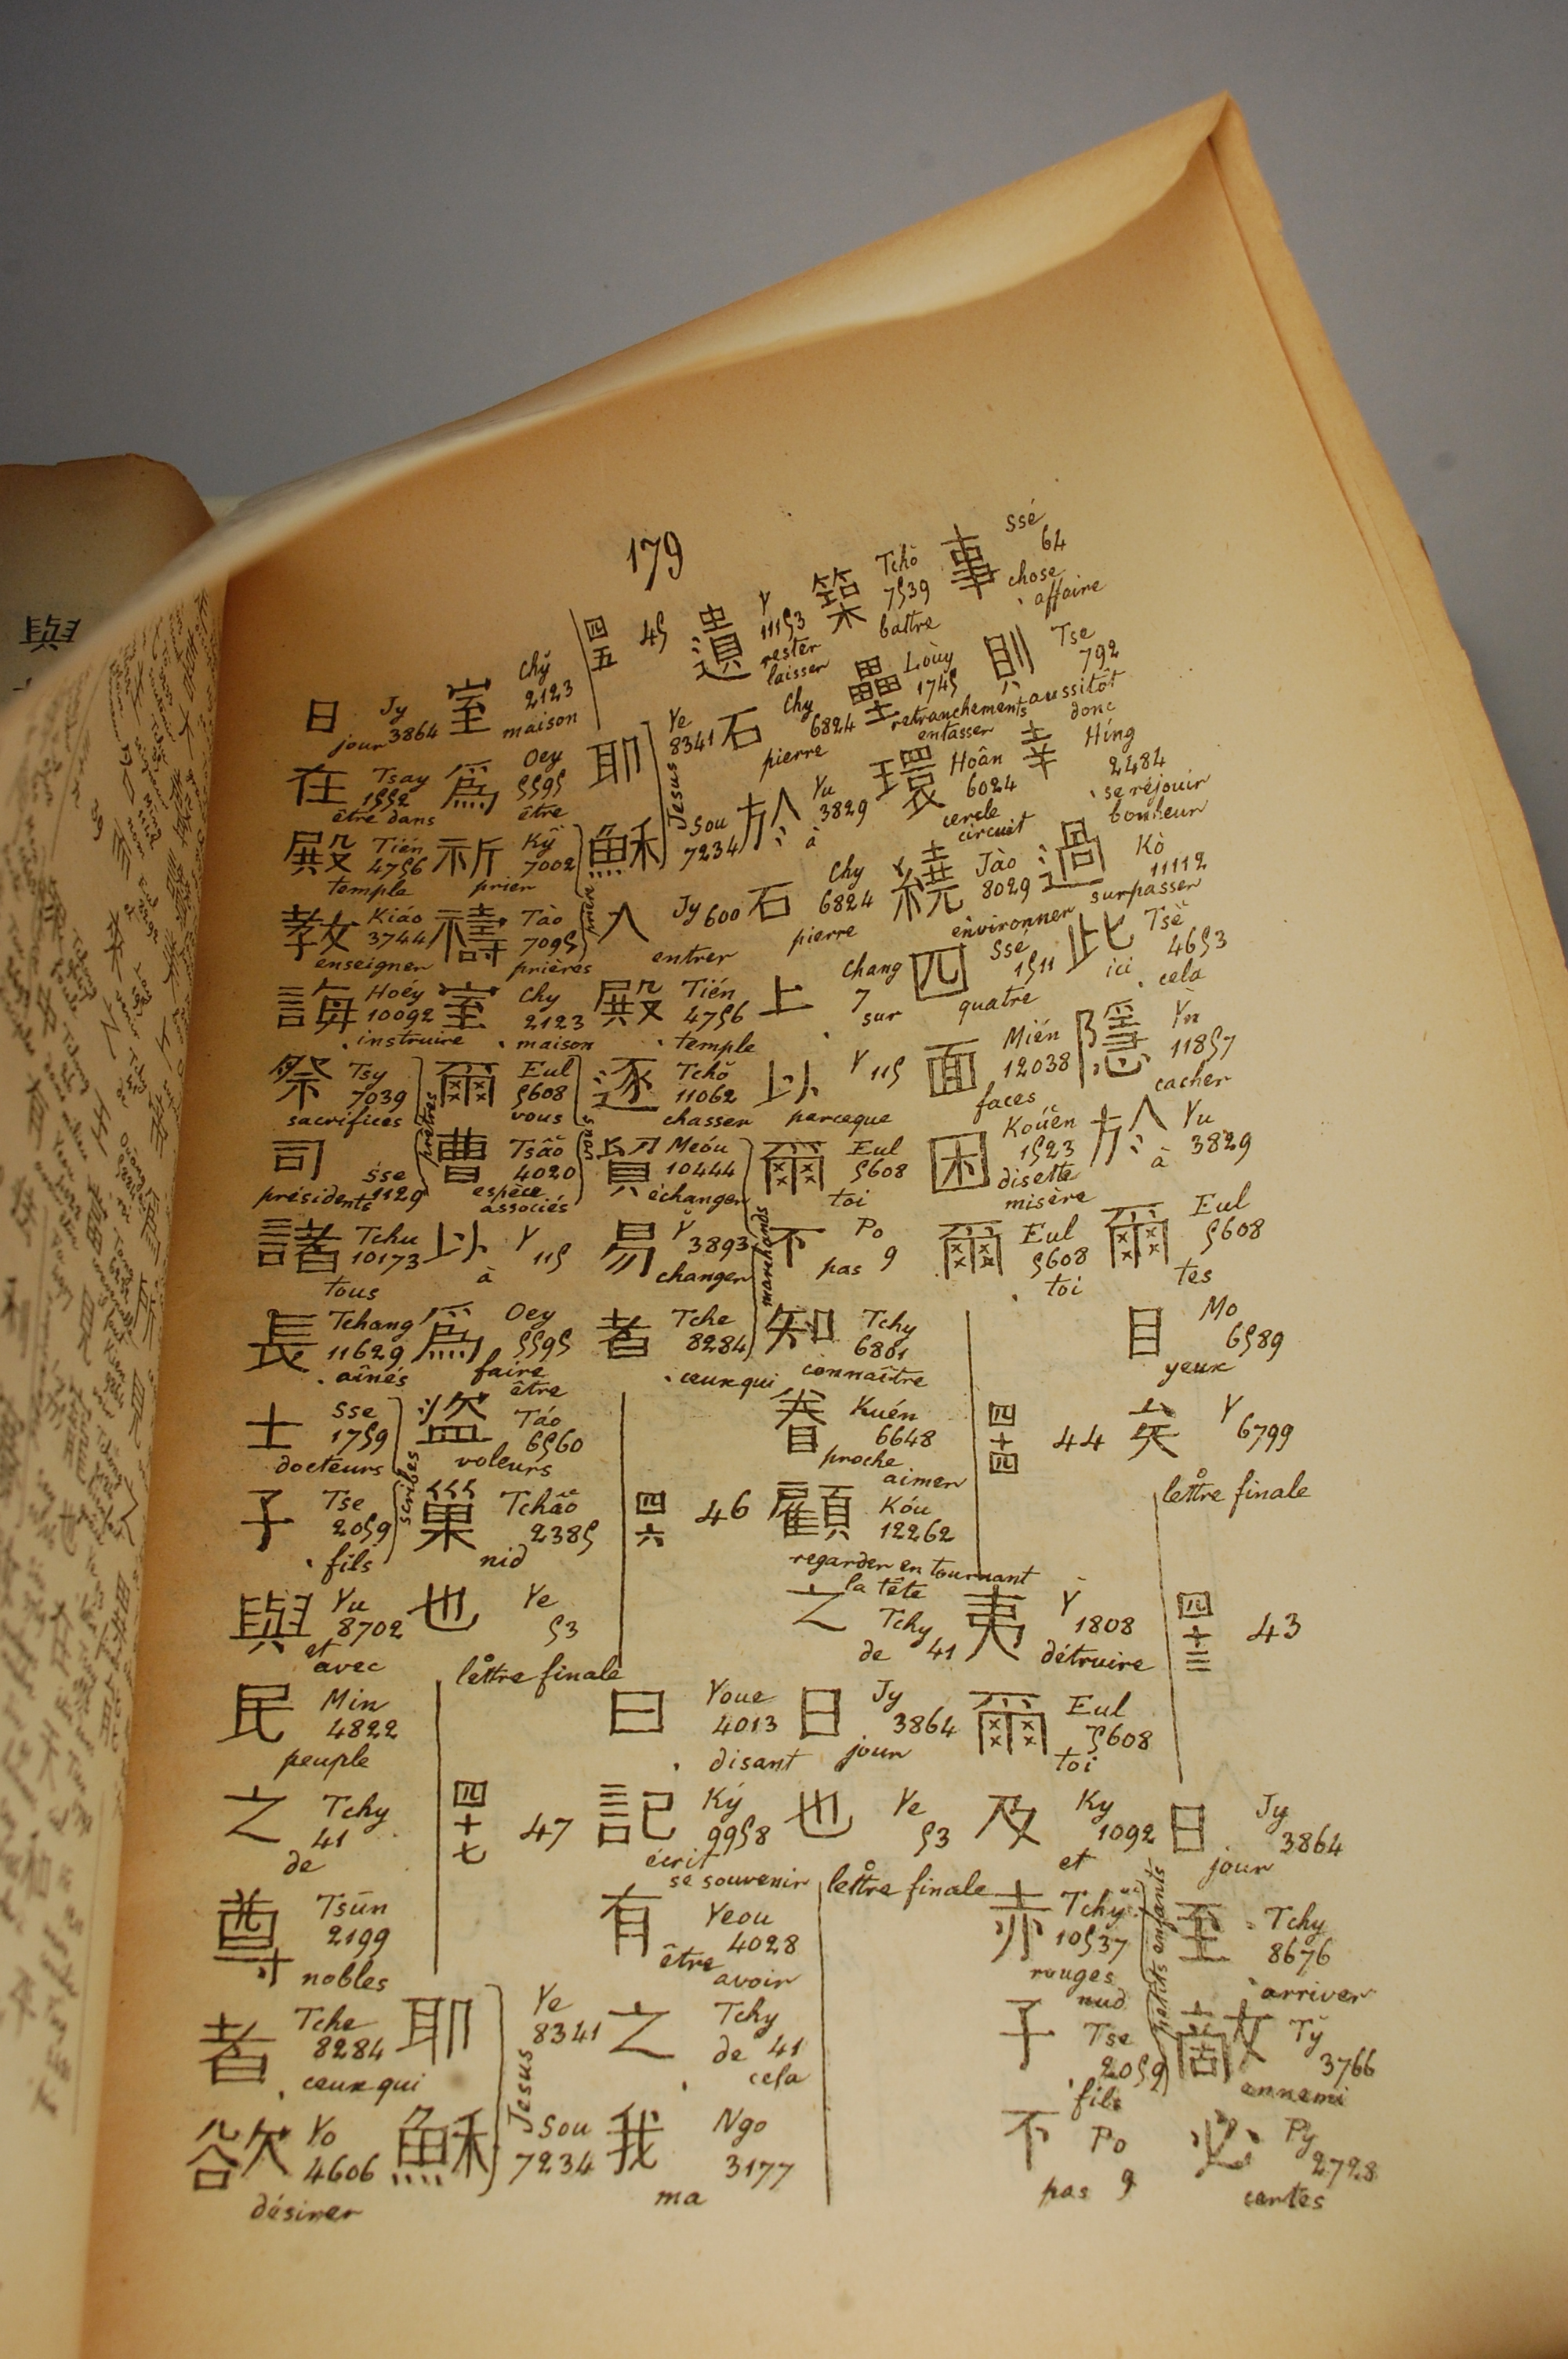 179
事 Ssé 64 chose affaire
則 Tse 792 aussitôt donc
幸 Híng 2484 se réjouir bonheur
過 Kò 11112 surpasser
此 Tsè 4653 ici cela
隱 Yn 11857 cacher
於 Yu 3829 à
爾 Eul 5608 tes
目 Mo 6589 yeux
矣 Y 6799 lettre finale
四十三 43
日 Jy 3864 jour
至 Tchy 8676 arriver
敵 Ty̆ 3766 ennemi
必 Py 2728 certes
築 Tchŏ 7539 battre
壘 Loùy 1745 retranchements entasser
環 Hoân 6024 cercle circuit
繞 Jào 8029 environner
四 Ssé 1511 quatre
面 Mién 12038 faces
困 Kouĕn 1523 disette misère
爾 Eul 5608 toi
四十四 44
夷 Y 1808 détruire
爾 Eul 5608 toi
及 Ky 1092 et
赤 Tchy 10537 rouges nud
子 Tse 2059 fils
petits enfants
不 Po 9 pas
遺 Y 11153 rester laisser
石 Chy 6824 pierre
於 Yu 3829 à
石 Chy 6824 pierre
上 Chang 7 sur
以 Y 115 parceque
爾 Eul 5608 toi
不 Po 9 pas
知 Tchy 6801 connaître
眷 Kuén 6648 proche aimer
顧 Kóu 12262 regarder en tournant la tête
之 Tchy 41 de
日 Jy 3864 jour
也 Ye 53 lettre finale
四五 45
耶 Ye 8341
穌 Sou 7234
Jesus
入 Jy 600 entrer
殿 Tién 4756 temple
逐 Tchŏ 11062 chasser
貿 Meóu 10444 échanger
易 Y̆ 3893 changer
者 Tche 8284 ceux qui
marchands
四六 46
曰 Youe 4013 disant
記 Ký 9958 écrit se souvenir
有 Yeou 4028 être avoir
之 Tchy 41 de cela
我 Ngo 3177 ma
室 Chy̆ 2123 maison
爲 Oey 5595 être
祈 Ky̆ 7002 prier
禱 Tào 7095 prières
室 Chy 2123 maison
爾 Eul 5608 vous
曹 Tsâo 4020 espèce associés
vous
以 Y 115 à
爲 Oey 5595 faire être
盜 Táo 6560 voleurs
巢 Tchăo 2385 nid
也 Ye 53 lettre finale
四十七 47
耶 Ye 8341
穌 Sou 7234
Jesus
日 Jy 3864 jour
在 Tsay 1552 être dans
殿 Tién 4756 temple
教 Kiáo 3744 enseigner
誨 Hoéy 10092 instruire
祭 Tsy 7039 sacrifices
司 Sse 1129 présidents
prêtres
諸 Tchu 10173 tous
長 Tchang 11629 aînés
士 Sse 1759 docteurs
子 Tse 2059 fils
scribes
與 Yu 8702 et avec
民 Min 4822 peuple
之 Tchy 41 de
尊 Tsūn 2199 nobles
者 Tche 8284 ceux qui
欲 Yo 4606 désirer